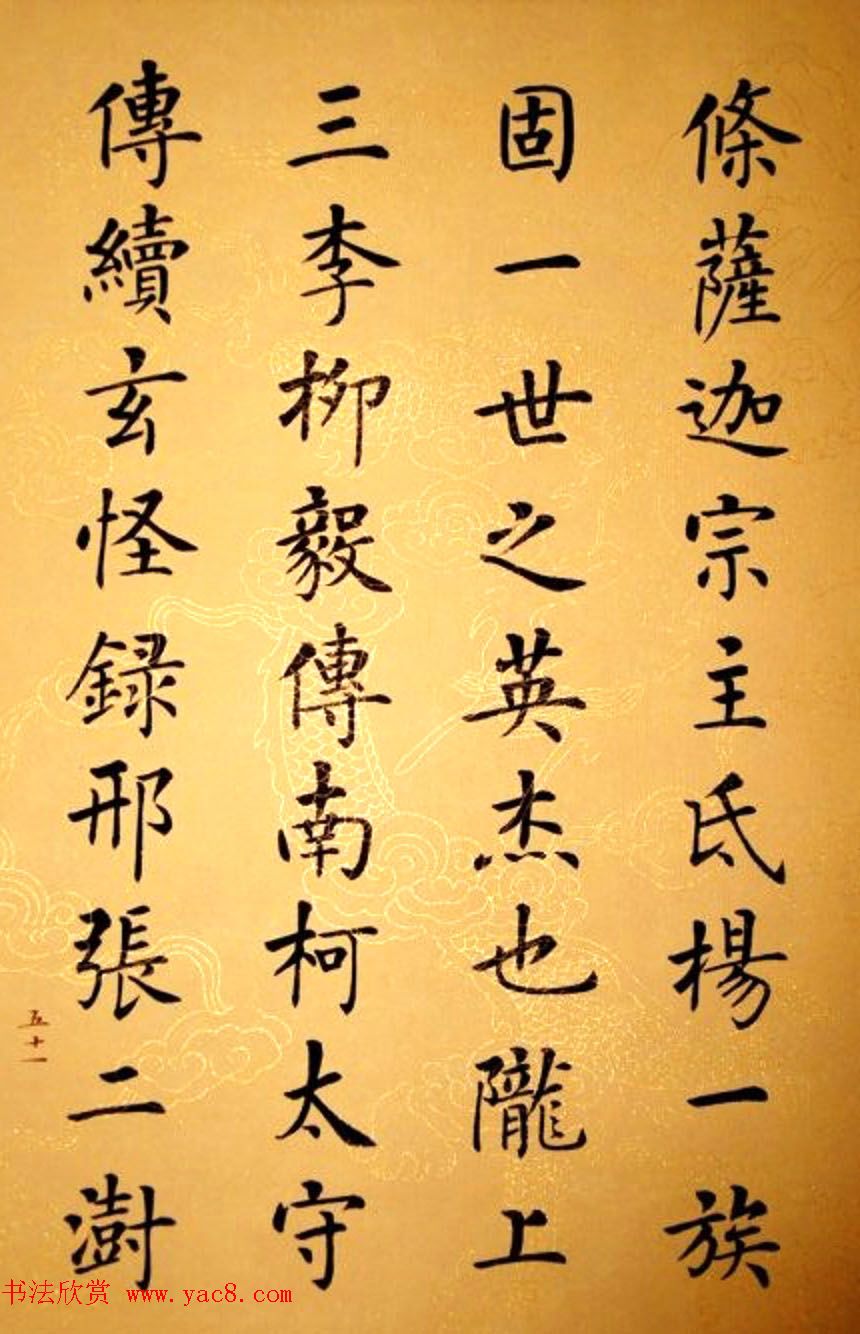 條薩迦宗主氐楊一族
固一世之英杰也隴上
三李柳毅傳南柯太守
傳續玄怪録邢張二澍
五十一
书法欣赏 www.yac8.com